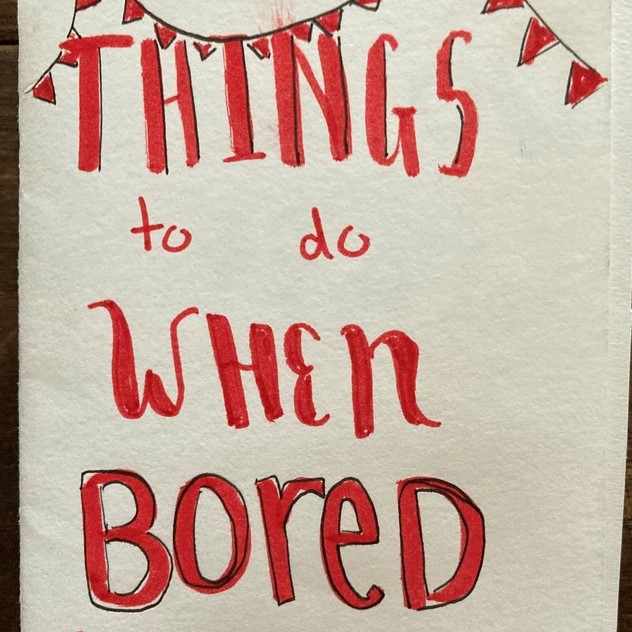 THINGS
to do
WHEN
BoreD